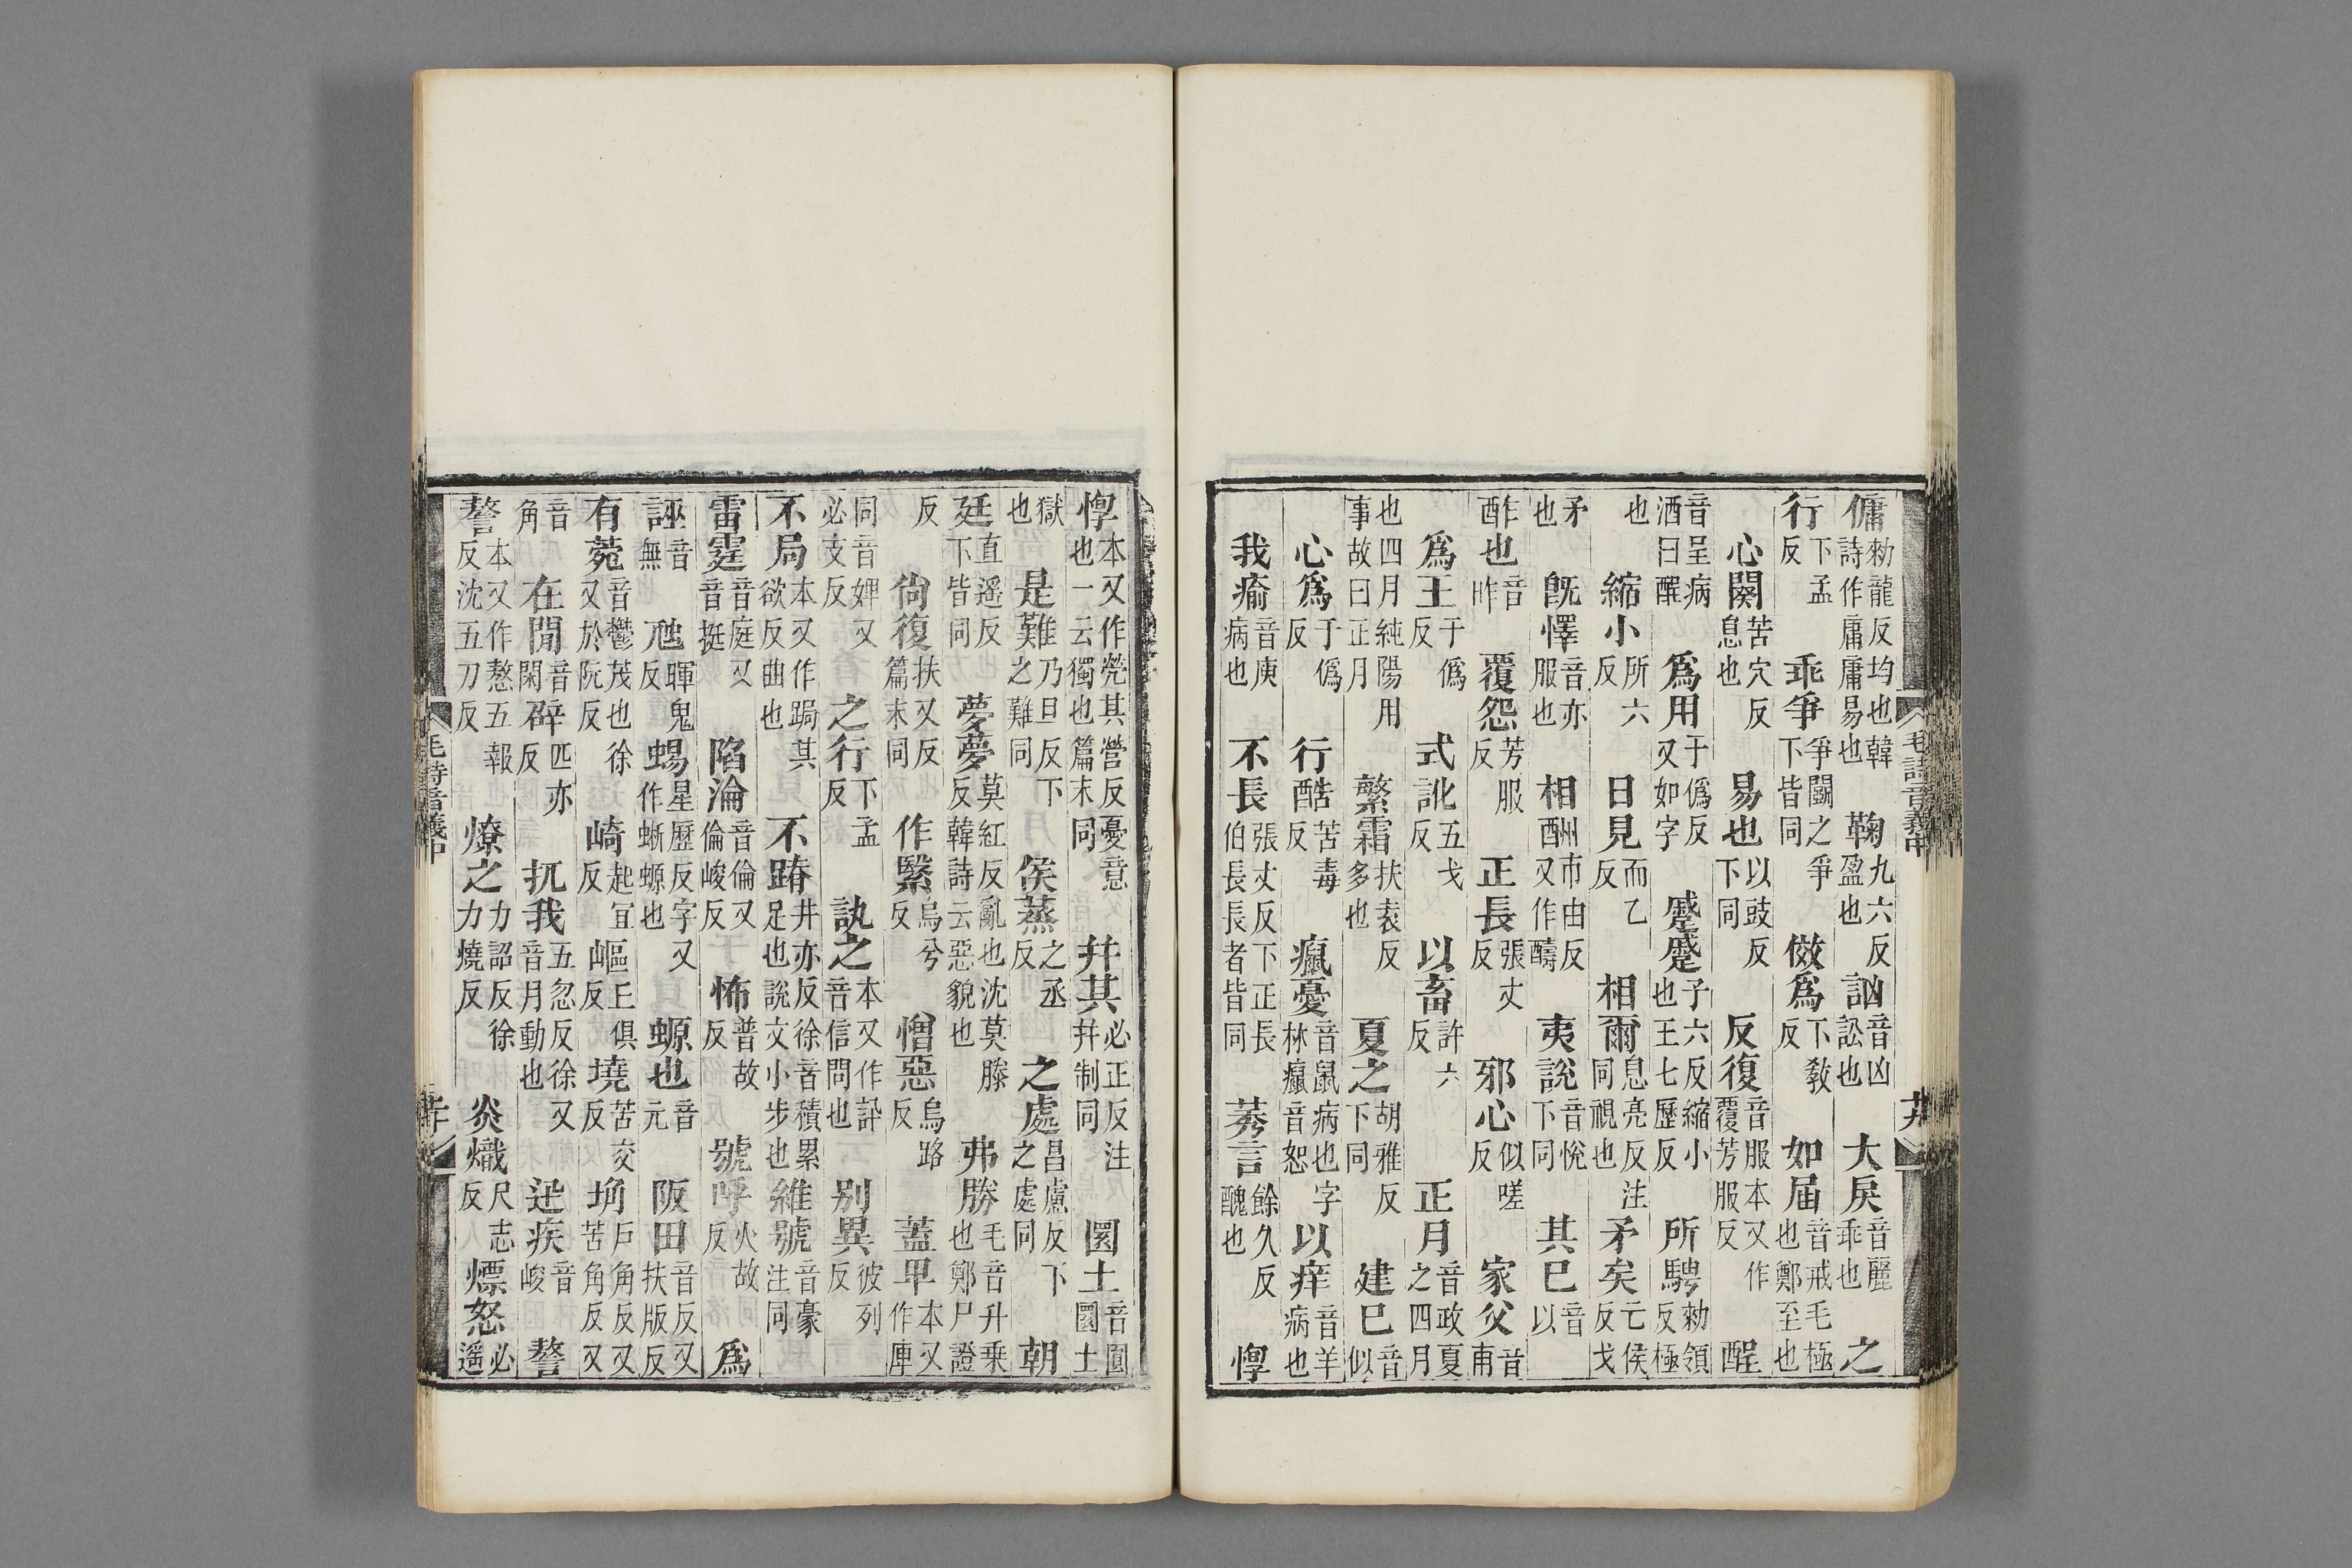 傭勑龍反均也韓詩作庸庸易也　鞠九六反盈也　訩音凶訟也　大戾音麗乖也　之
行下孟反　乖爭爭鬬之爭下皆同　傚爲下敎反　如届音戒毛極也鄭至也
心闋苦穴反息也　易也以豉反下同　反復音服本又作覆芳服反　酲
音呈病酒曰醒　爲用于僞反又如字　蹙蹙子六反縮小也王七歷反　所騁勑領反極
也　縮小所六反　日見而乙反　相爾息亮反注同視也　矛矣亡侯反戈
矛也　旣懌音亦服也　相酬市由反又作醻　夷說音悅下同　其巳音以
酢也音昨　覆怨芳服反　正長張丈反　邪心似嗟反　家父音甫
爲王于僞反　式訛五戈反　以畜許六反　正月音政夏之四月
也四月純陽用事故曰正月　繁霜扶袁反多也　夏之胡雅反下同　建巳音似
心爲于僞反　行酷苦毒反　癙憂音鼠病也字林癙音恕　以痒音羊病也
我瘉音庾病也　不長張丈反下正長伯長長者皆同　莠言餘久反醜也　惸
毛詩音義中　廿
惸本又作煢其營反憂意也一云獨也篇末同　幷其必正反注幷制同　圜土音圓圜土
獄也　是難乃旦反下之難同　侯蒸之丞反　之處昌慮反下之處同　朝
廷直遥反下皆同　夢夢莫紅反亂也沈莫滕反韓詩云惡貌也　弗勝毛音升乗也鄭尸證
反　尙復扶又反篇末同　作繄烏兮反　憎惡烏路反　蓋甲本又作庳
同音婢又必支反　之行下孟反　訙之本又作訊音信問也　别異彼列反
不局本又作跼其欲反曲也　不蹐井亦反徐音積累足也說文小步也　維號音豪注同
雷霆音庭又音挺　陷淪音倫又倫峻反　怖普故反　號呼火故反　爲
誣音無　虺暉鬼反　蜴星歷反字又作蜥螈也　螈也音元　阪田音反又扶版反
有菀音鬱茂也徐又於阮反　崎起宜反　嶇丘俱反　墝苦交反　埆戶角反又苦角反又
音角　在閒音閑　辟匹亦反　扤我五忽反徐又音月動也　迅疾音峻　謷
謷本又作熬五報反沈五刀反　燎之力詔反徐力燒反　炎熾尺志反　熛怒必遥
毛詩音義中